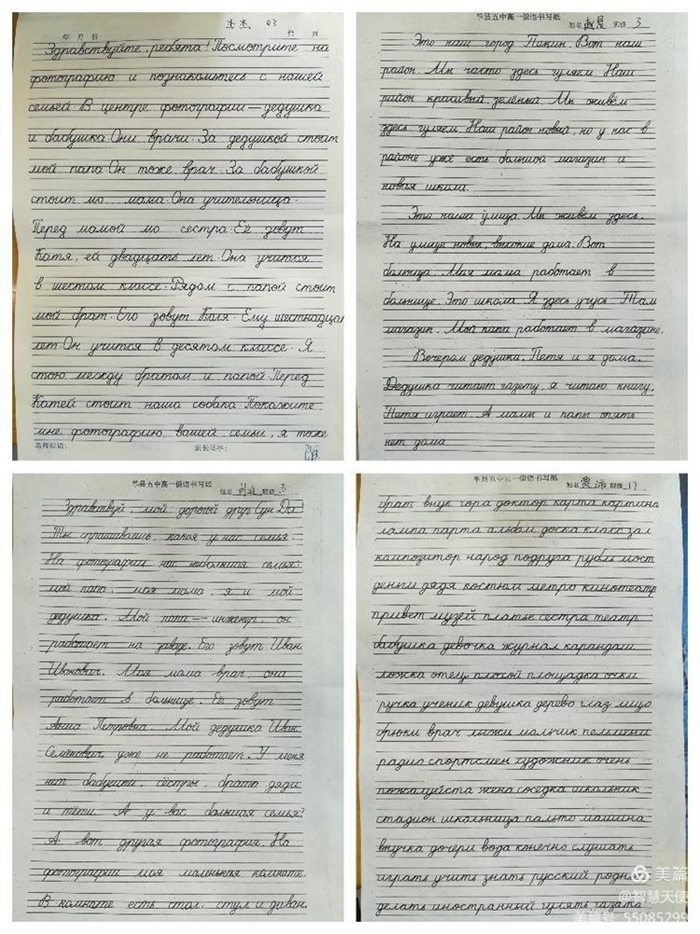 年 月 日
43
Здравствуйте, ребята! Посмотрите на
фотографию и познакомьтесь с нашей
семьёй. В центре фотографии — дедушка
и бабушка. Они врачи. За дедушкой стоит
мой папа. Он тоже врач. За бабушкой
стоит мо мама. Она учительница.
Перед мамой мо сестра. Её зовут
Катя, ей двадцать лет. Она учится
в шестом классе. Рядом с папой стоит
мой брат. Его зовут Коля. Ему шестнадцат
лет. Он учится в десятом классе. Я
стою между братом и папой. Перед
Катей стоит наша собака. Покажите
мне фотографию вашей семьи, я тоже
家长签字:
华县五中高一俄语书写纸
姓名 班级 3
Это наш город Пекин. Вот наш
район. Мы часто здесь гуляем. Наш
район красивый, зелёный. Мы живём
здесь гуляем. Наш район новый, но у нас в
районе уже есть большой магазин и
новая школа.
Это наша улица. Мы живём здесь.
На улице новые, высокие дома. Вот
больница. Моя мама работает в
больнице. Это школа. Я здесь учусь. Там
магазин. Мой папа работает в магазине.
Вечером дедушка, Петя и я дома.
Дедушка читает газету, я читаю книгу,
Петя играет. А мамы и папы опять
нет дома
华县五中高一俄语书写纸
姓名 班级 3
Здравствуй, мой дорогой друг Сун Да
Ты спрашиваешь, какая у нас семья.
На фотографии нас небольшая семья:
мой папа, моя мама, я и мой
дедушка. Мой папа — инженер, он
работает на заводе. Его зовут Иван
Иванович. Моя мама врач, она
работает в больнице. Её зовут
Анна Петровна. Мой дедушка Иван
Семёнович уже не работает. У меня
нет бабушки, сёстры, брата, дяди
и тёти. А у вас большая семья?
А вот другая фотография. На
фотографии моя маленькая комната.
В комнате есть стол, стул и диван.
华县五中高一俄语书写纸
姓名 班级 17
брат внук гора доктор карта картина
лампа парта альбом доска класс зал
композитор народ подруга рубль мост
деньги дядя костюм метро кинотеатр
привет музей платье сестра театр
бабушка девочка журнал карандаш
ложка отец плохой площадка очки
ручка ученик девушка дерево глаз лицо
брюки врач лыжи мальчик пельмени
радио спортсмен художник очень
пожалуйста жена соседка школьник
стадион школьница пальто машина
внучка дочери вода конечно слушать
играть учить знать русский родн
делать иностранный гулять газета
美篇
@智慧天使
美篇号: 55085299